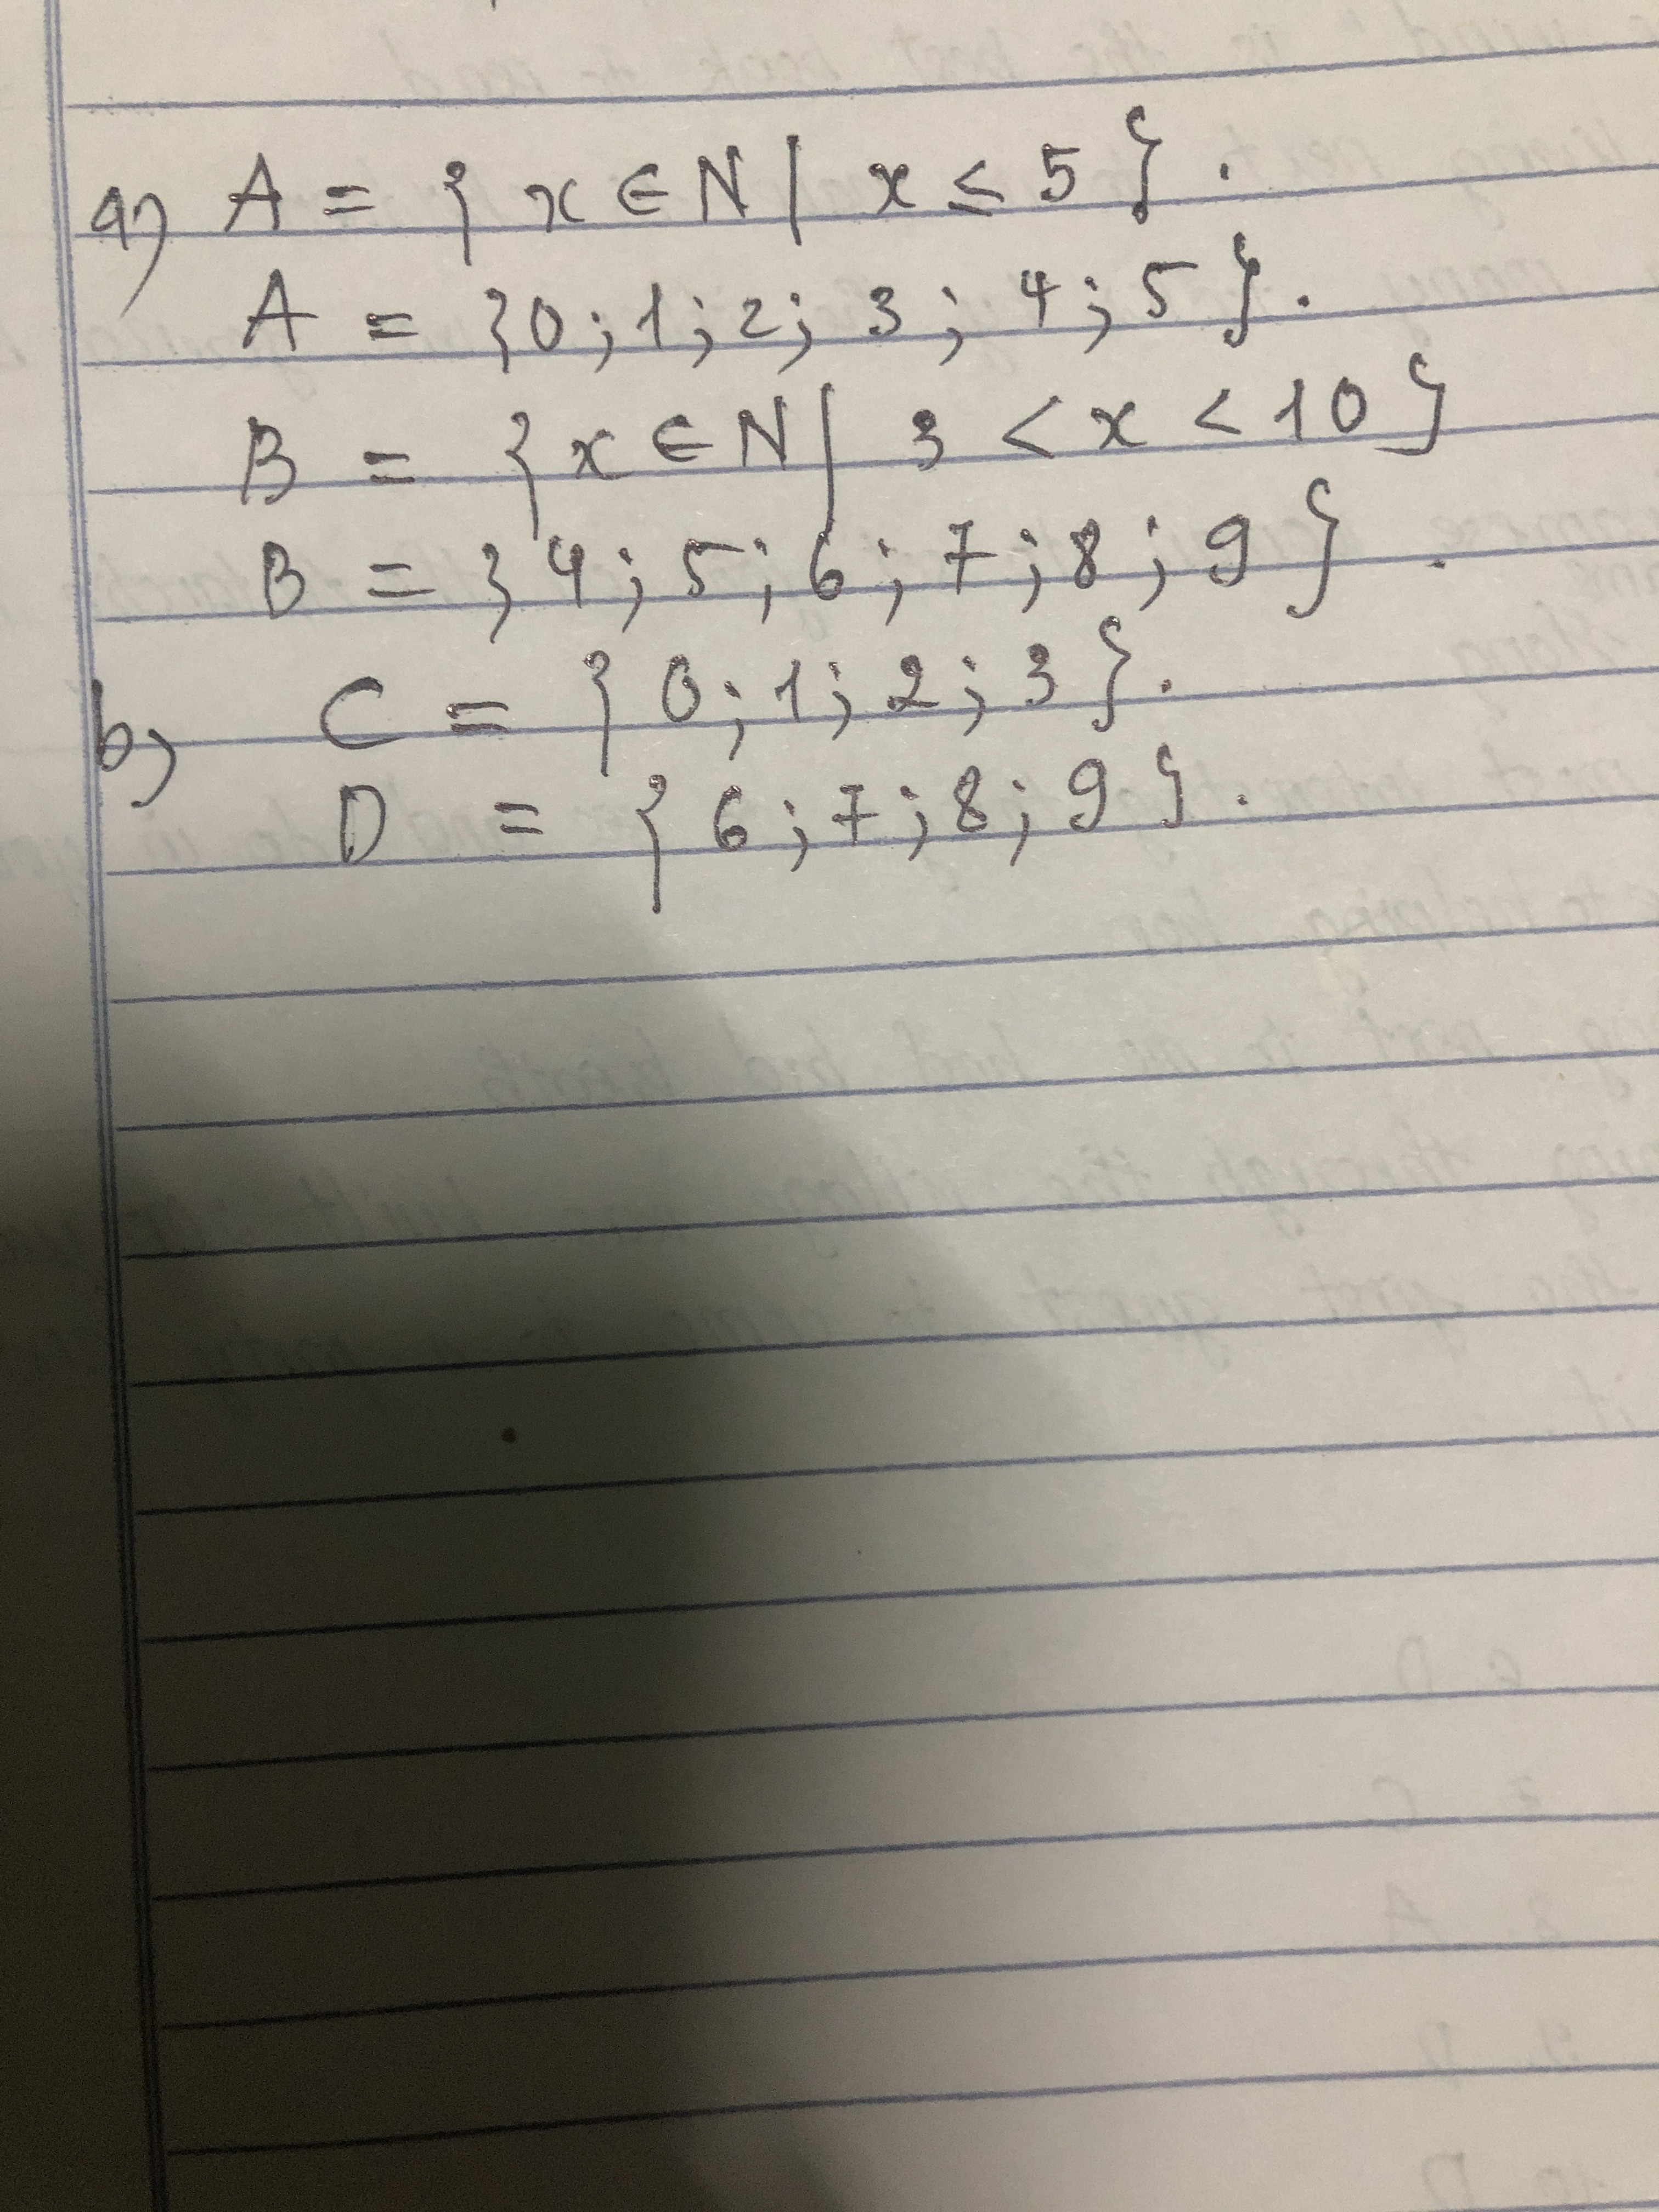 a) A = { x ∈ N | x ≤ 5 } .
A = { 0 ; 1 ; 2 ; 3 ; 4 ; 5 } .
B = { x ∈ N | 3 < x < 10 }
B = { 4 ; 5 ; 6 ; 7 ; 8 ; 9 } .
b) C = { 0 ; 1 ; 2 ; 3 } .
D = { 6 ; 7 ; 8 ; 9 } .